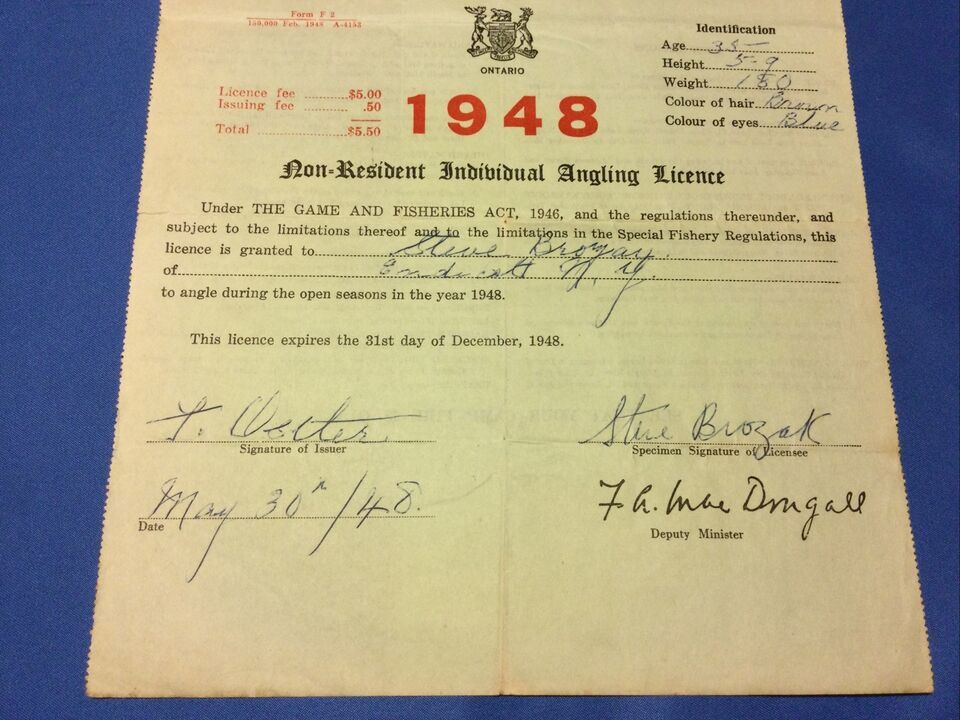 Form F 2
150,000 Feb. 1948 A-4153
ONTARIO
Identification
Age 35
Height 5-9
Weight 180
Colour of hair Brown
Colour of eyes Blue
Licence fee $5.00
Issuing fee .50
Total $5.50
1948
Non-Resident Individual Angling Licence
Under THE GAME AND FISHERIES ACT, 1946, and the regulations thereunder, and
subject to the limitations thereof and to the limitations in the Special Fishery Regulations, this
licence is granted to Steve
of Endicott N.Y.
to angle during the open seasons in the year 1948.
This licence expires the 31st day of December, 1948.
Steve Brozak
Signature of Issuer
Specimen Signature of Licensee
May 30th /48.
Date
F. A. MacDougall
Deputy Minister